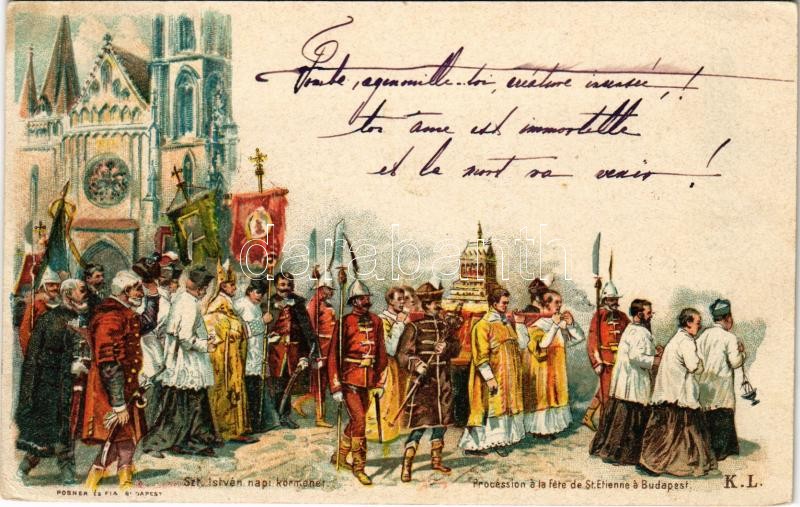 Tombe, agenouille-toi, créature insensée,!
ton âme est immortelle
et la mort va venir!
darabanth
Szt. István napi körmenet.
Procession à la fête de St. Etienne à Budapest.
K.L.
POSNER és FIA BUDAPEST